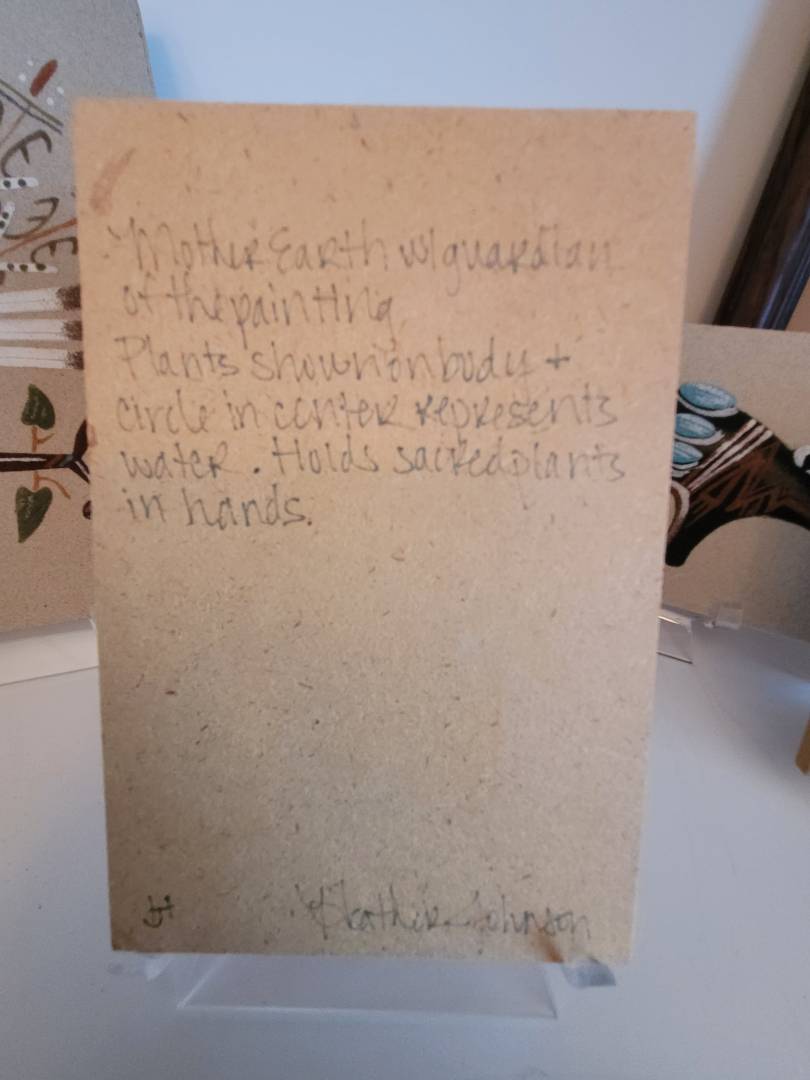 Mother Earth w/guardian
of the painting
Plants shown on body +
circle in center represents
water. Holds sacred plants
in hands.
Johnson